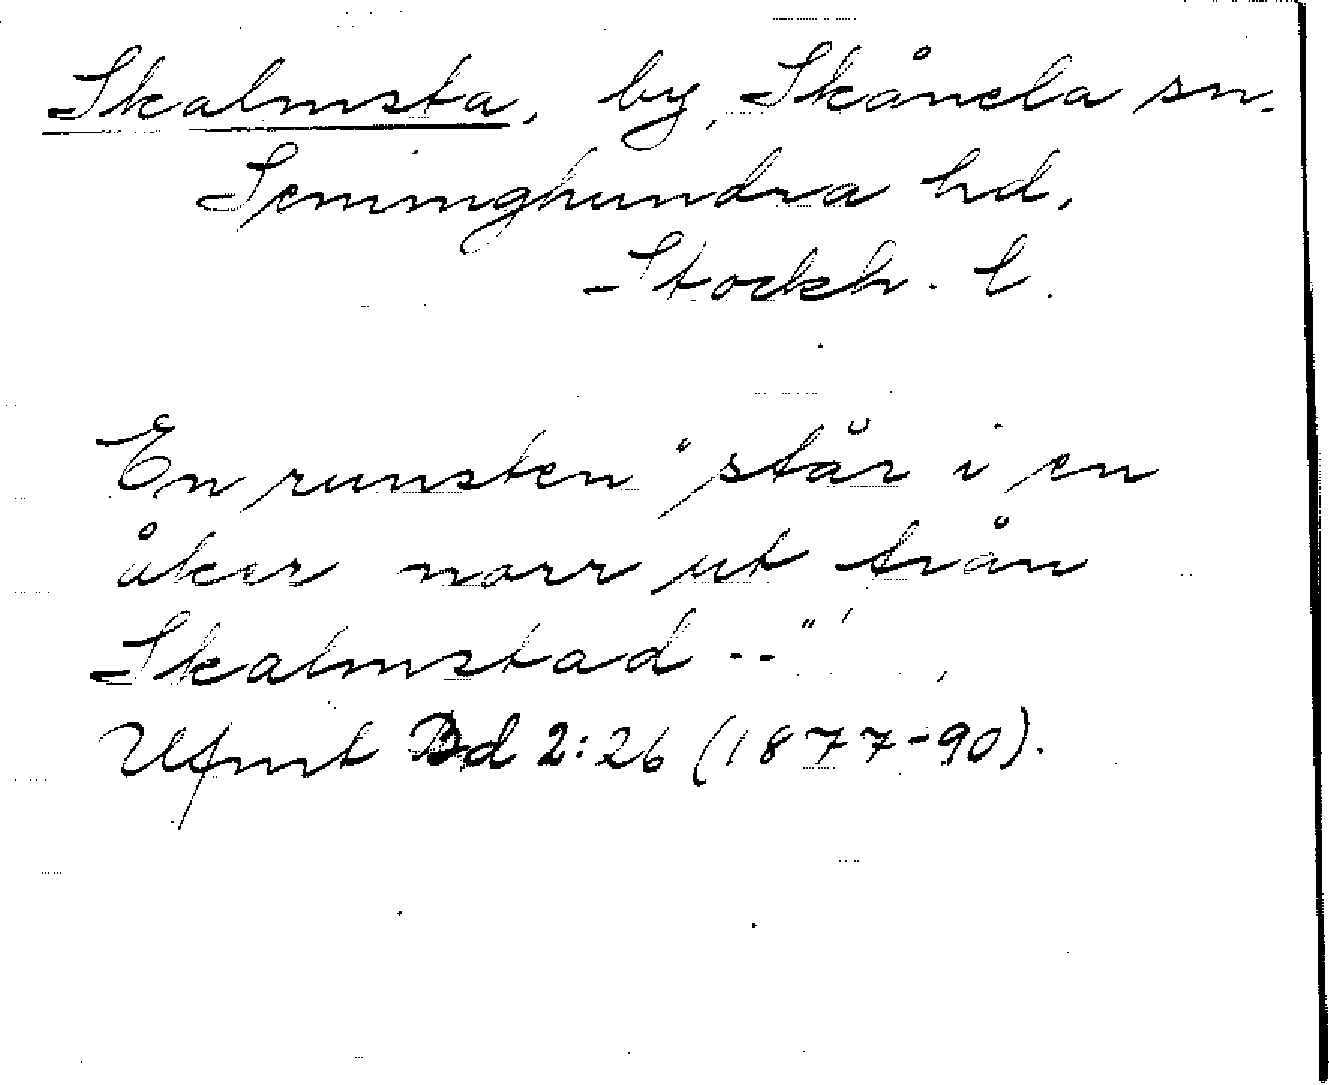 Skalmsta, by, Skånela sn.
Seminghundra hd,
Stockh. l.
En runsten "står i en
åker norr ut från
Skalmstad --"
Ufmt Bd 2:26 (1877-90).